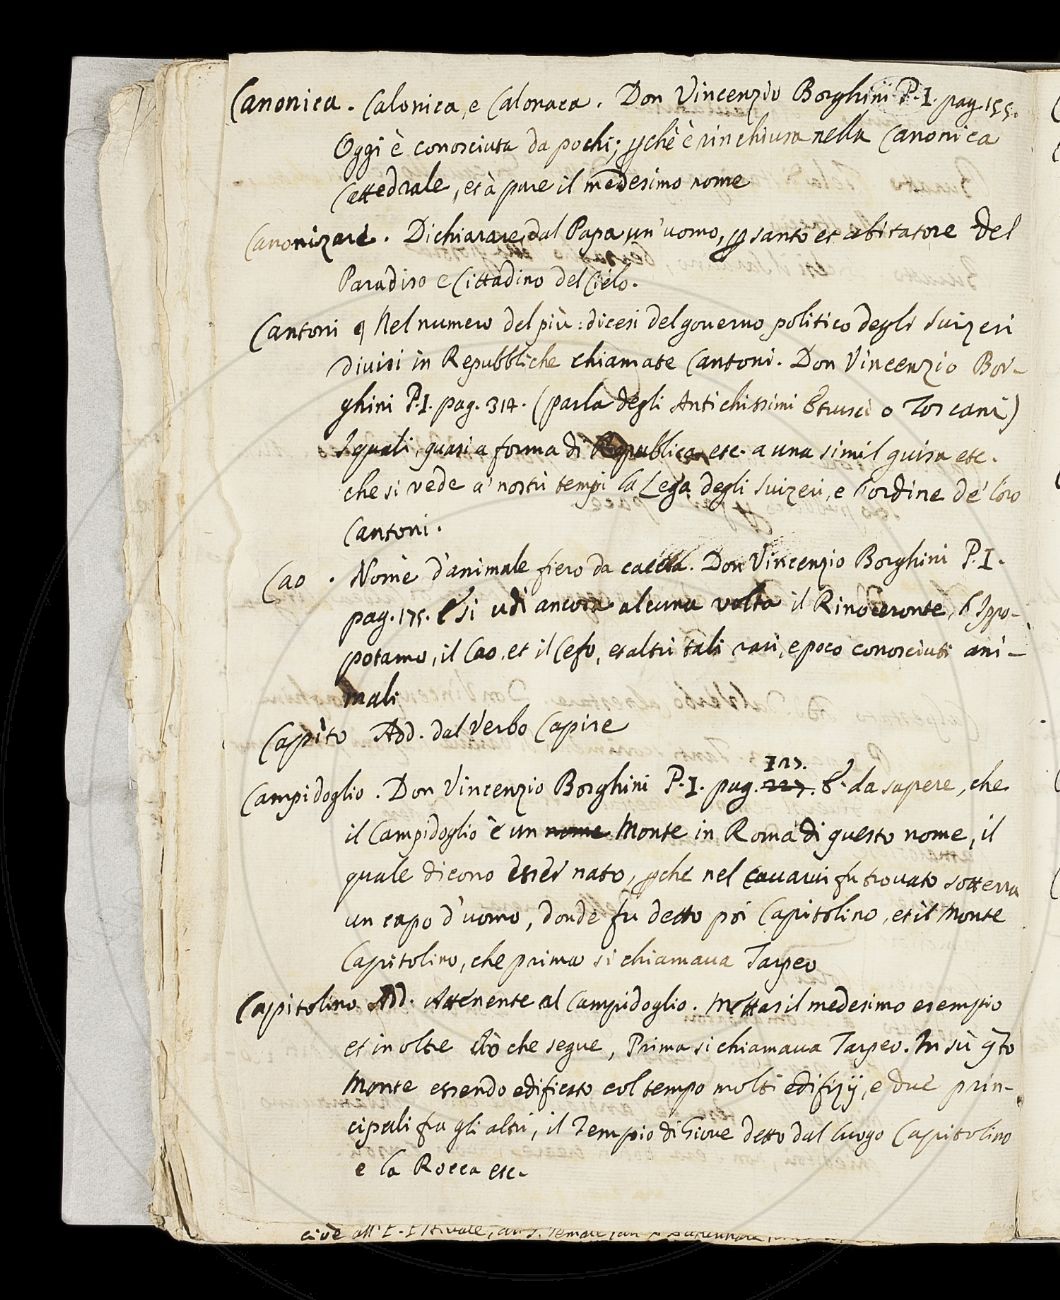 Canonica. Calonica, e Calonaca. Don Vincenzio Borghini P. I. pag. 155.
Oggi è conosciuta da pochi; pchè è rinchiusa nella Canonica
Cattedrale, et à pure il medesimo nome
Canonizare. Dichiarare dal Papa un'uomo, p santo et abitatore del
Paradiso e Cittadino del Cielo.
Cantoni Nel numero del più: dicesi del governo politico degli Suizeri
divisi in Repubbliche chiamate Cantoni. Don Vincenzio Bor-
ghini P. I. pag. 314. (parla degli Antichissimi Etrusci o Toscani)
I quali, quasi a forma di Repubblica etc. a una simil guisa etc.
che si vede a' nostri tempi la Lega degli Suizeri, e l'ordine de' loro
Cantoni.
Cao. Nome d'animale fiero da caccia. Don Vincenzio Borghini P. I.
pag. 175. E si udì ancora alcuna volta il Rinoceronte, l'Ippo-
potamo, il Cao, et il Cefo, et altri tali rari, e poco conosciuti ani-
mali
Capìto Add. dal Verbo Capire
Campidoglio. Don Vincenzio Borghini P. I. pag. 227. 153. E da sapere, che
il Campidoglio è un nome Monte in Roma di questo nome, il
quale dicono essersi nato, pchè nel cavarvi fu trovato sotterra
un capo d'uomo, donde fu detto poi Capitolino, et il Monte
Capitolino, che prima si chiamava Tarpeo
Capitolino Add. Attenente al Campidoglio. Mettasi il medesimo esempio
et in oltre ciò che segue, Prima si chiamava Tarpeo. In sù qto
Monte essendo edificato col tempo molti edifizij, e due prin-
cipali fra gli altri, il Tempio di Giove detto dal luogo Capitolino
e la Rocca etc.
cioè all'